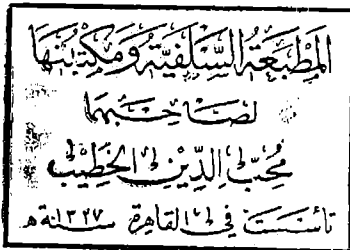 المَطْبَعَةُ السَّلَفِيَّةُ وَمَكْتَبَتُهَا
لصَاحِبِهَا
مُحِبّ الدِّيْن الخَطِيْب
تأسّسَتْ في القاهرة سنة ١٣٣٧هـ